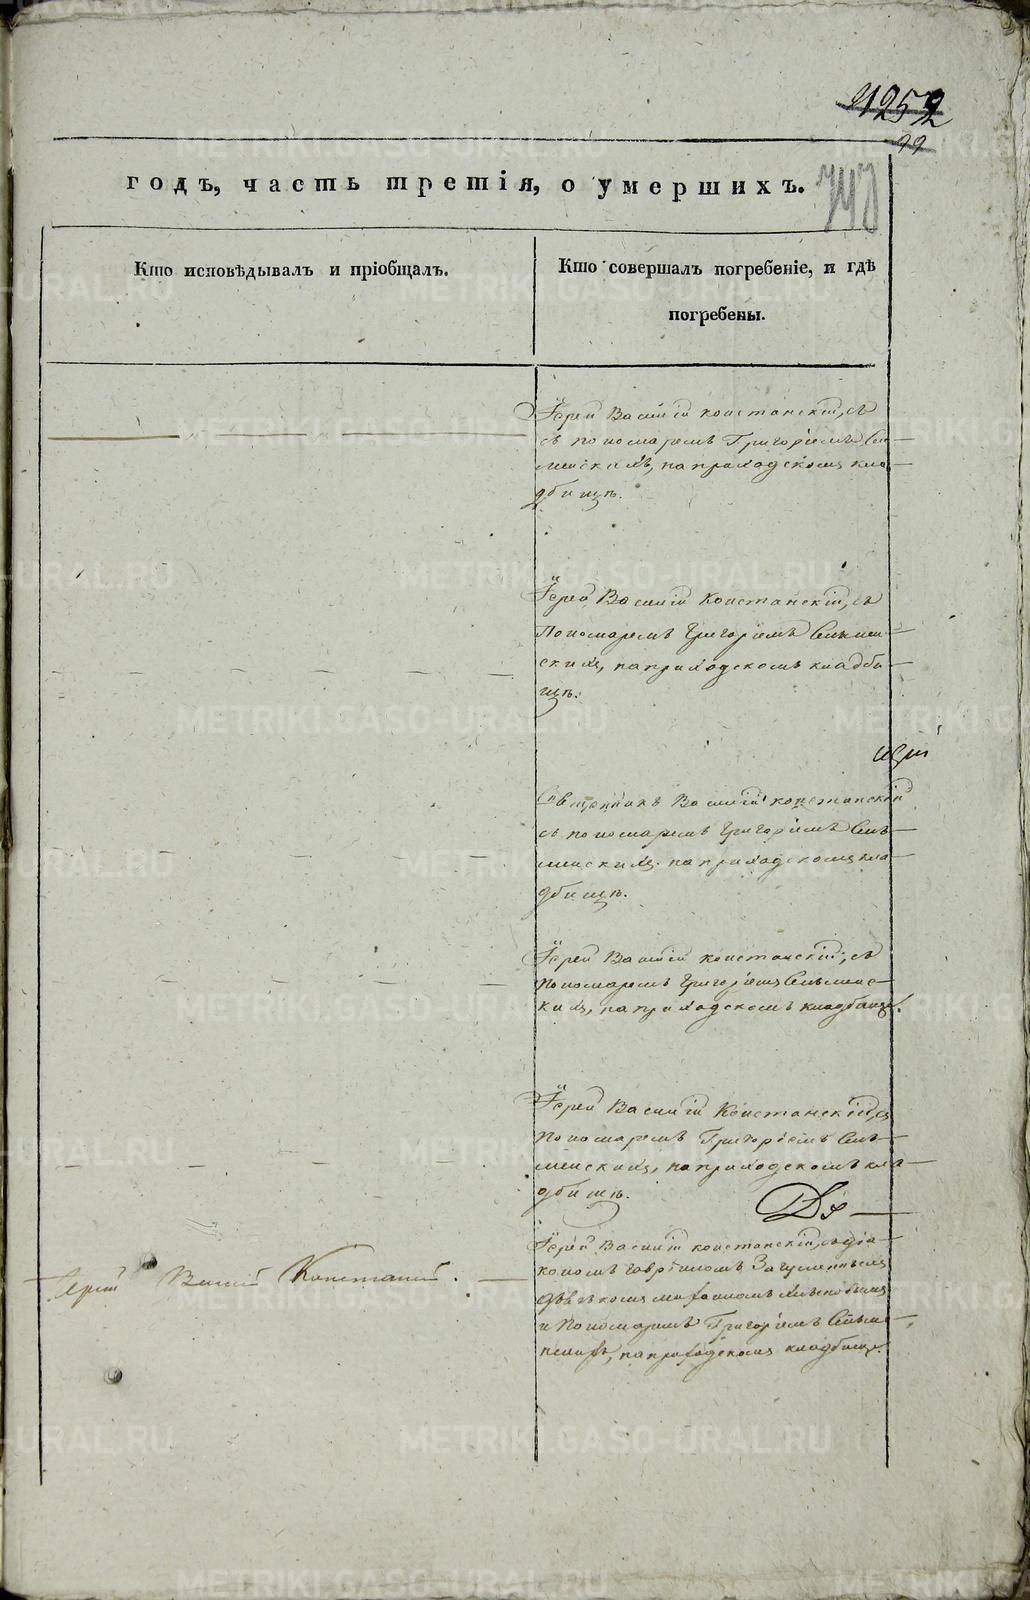 4252
99
743
годъ, часть третія, о умершихъ.
Кто исповѣдывалъ и пріобщалъ.
Кто совершалъ погребеніе, и гдѣ
погребены.
Іерей Василій Констанскій, съ
съ пономаремъ Григоріемъ
на приходскомъ кла
дбищѣ.
Іерей Василій Констанскій, съ
Пономаремъ Григоріемъ
скимъ, на приходскомъ кладби
щѣ.
Священникъ Василій Констанскій
съ пономаремъ Григоріемъ
на приходскомъ кла
дбищѣ.
Іерей Василій Констанскій, съ
пономаремъ Григоріемъ
кимъ, на приходскомъ кладбищѣ.
Іерей Василій Констанскій, съ
Пономаремъ Григоріемъ
на приходскомъ кла
дбищѣ.
Дія
Іерей Василій Констанскій, съ діа
кономъ Гавріиломъ
Іерей Василій Констанскій.
и Пономаремъ Григоріемъ
на приходскомъ кладбищѣ.
METRIKI.GASO-URAL.RU